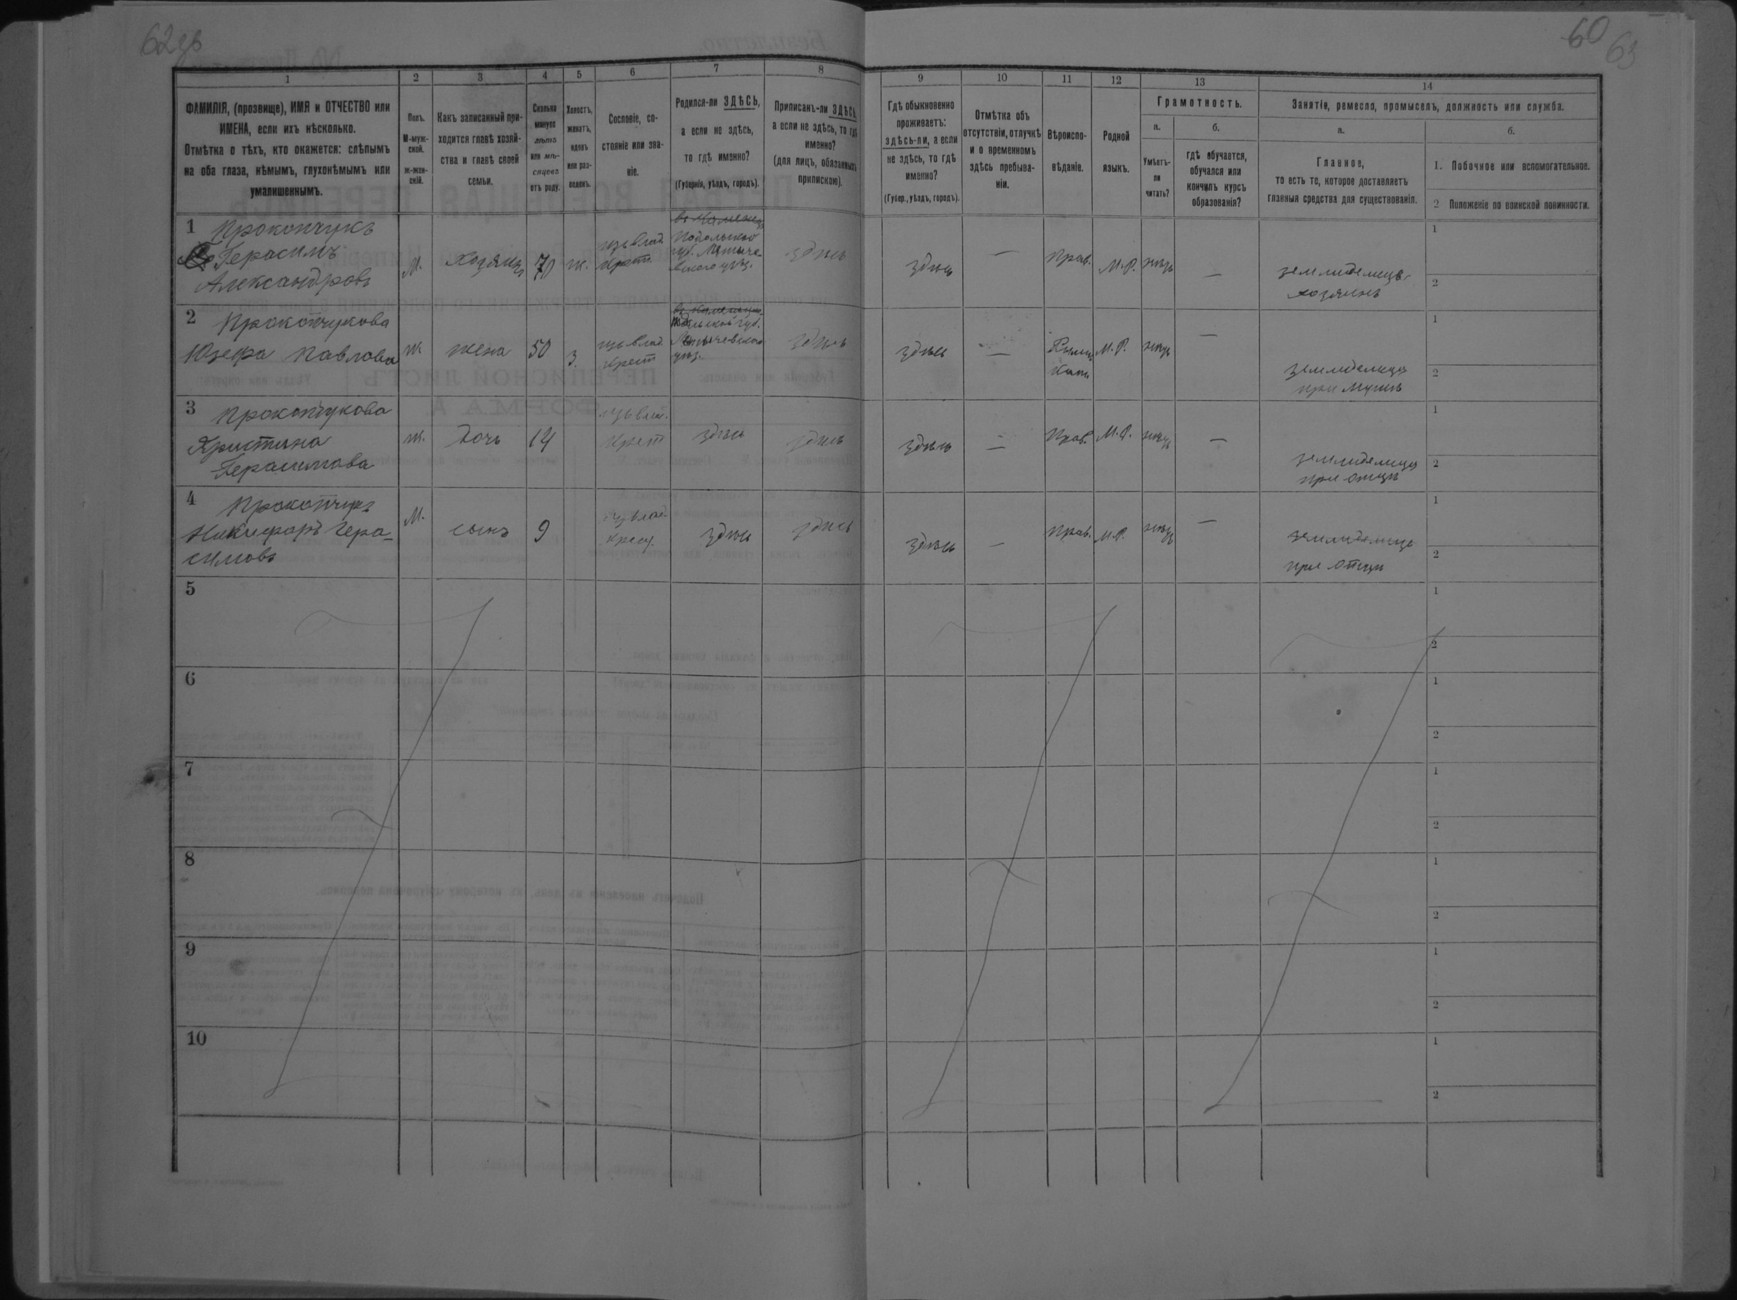 62 об
60
63
1
2
3
4
5
6
7
8
ФАМИЛІЯ, (прозвище), ИМЯ и ОТЧЕСТВО или
ИМЕНА, если ихъ нѣсколько.
Отмѣтка о тѣхъ, кто окажется: слѣпымъ
на оба глаза, нѣмымъ, глухонѣмымъ или
умалишеннымъ.
Полъ.
М-муж-
ской.
ж-жен-
скій.
Какъ записанный при-
ходится главѣ хозяй-
ства и главѣ своей
семьи.
Сколько
минуло
лѣтъ
или мѣ-
сяцевъ
отъ роду.
Холостъ,
женатъ,
вдовъ
или раз-
веденъ.
Сословіе, со-
стояніе или зва-
ніе.
Родился-ли ЗДѢСЬ,
а если не здѣсь,
то гдѣ именно?
(Губернія, уѣздъ, городъ).
Приписанъ-ли ЗДѢСЬ,
а если не здѣсь, то гдѣ
именно?
(для лицъ, обязанныхъ
припискою).
9
10
11
12
13
14
Гдѣ обыкновенно
проживаетъ:
здѣсь-ли, а если
не здѣсь, то гдѣ
именно?
(Губер., уѣздъ, городъ).
Отмѣтка объ
отсутствіи, отлучкѣ
и о временномъ
здѣсь пребыва-
ніи.
Вѣроиспо-
вѣданіе.
Родной
языкъ.
Грамотность.
а.
б.
Умѣетъ-
ли
читать?
гдѣ обучается,
обучался или
кончилъ курсъ
образованія?
Занятіе, ремесло, промыселъ, должность или служба.
а.
б.
Главное,
то есть то, которое доставляетъ
главныя средства для существованія.
1. Побочное или вспомогательное.
2 Положеніе по воинской повинности.
1 Прокопчукъ
Герасимъ
Александровъ
М.
хозяинъ
70
ж.
изъ влад.
крест.
Подольской
губ. Летиче-
вскаго уѣз.
здѣсь
здѣсь
—
Прав.
М.Р.
нѣтъ
—
земледѣлецъ-
хозяинъ
1
2
2 Прокопчукова
Юзефа Павлова
ж.
жена
50
з.
изъ влад.
крест.
Летичевскаго
уѣз.
здѣсь
здѣсь
—
М.Р.
нѣтъ
—
земледѣлица
при мужѣ
1
2
3 Прокопчукова
Христина
Герасимова
ж.
дочь
14
изъ влад.
крест.
здѣсь
здѣсь
здѣсь
—
Прав.
М.Р.
нѣтъ
—
земледѣлица
при отцѣ
1
2
4 Прокопчукъ
Никифоръ Гера-
симовъ
М.
сынъ
9
изъ влад.
крест.
здѣсь
здѣсь
здѣсь
—
Прав.
М.Р.
нѣтъ
—
земледѣлецъ
при отцѣ
1
2
5
1
2
6
1
2
7
1
2
8
1
2
9
1
2
10
1
2